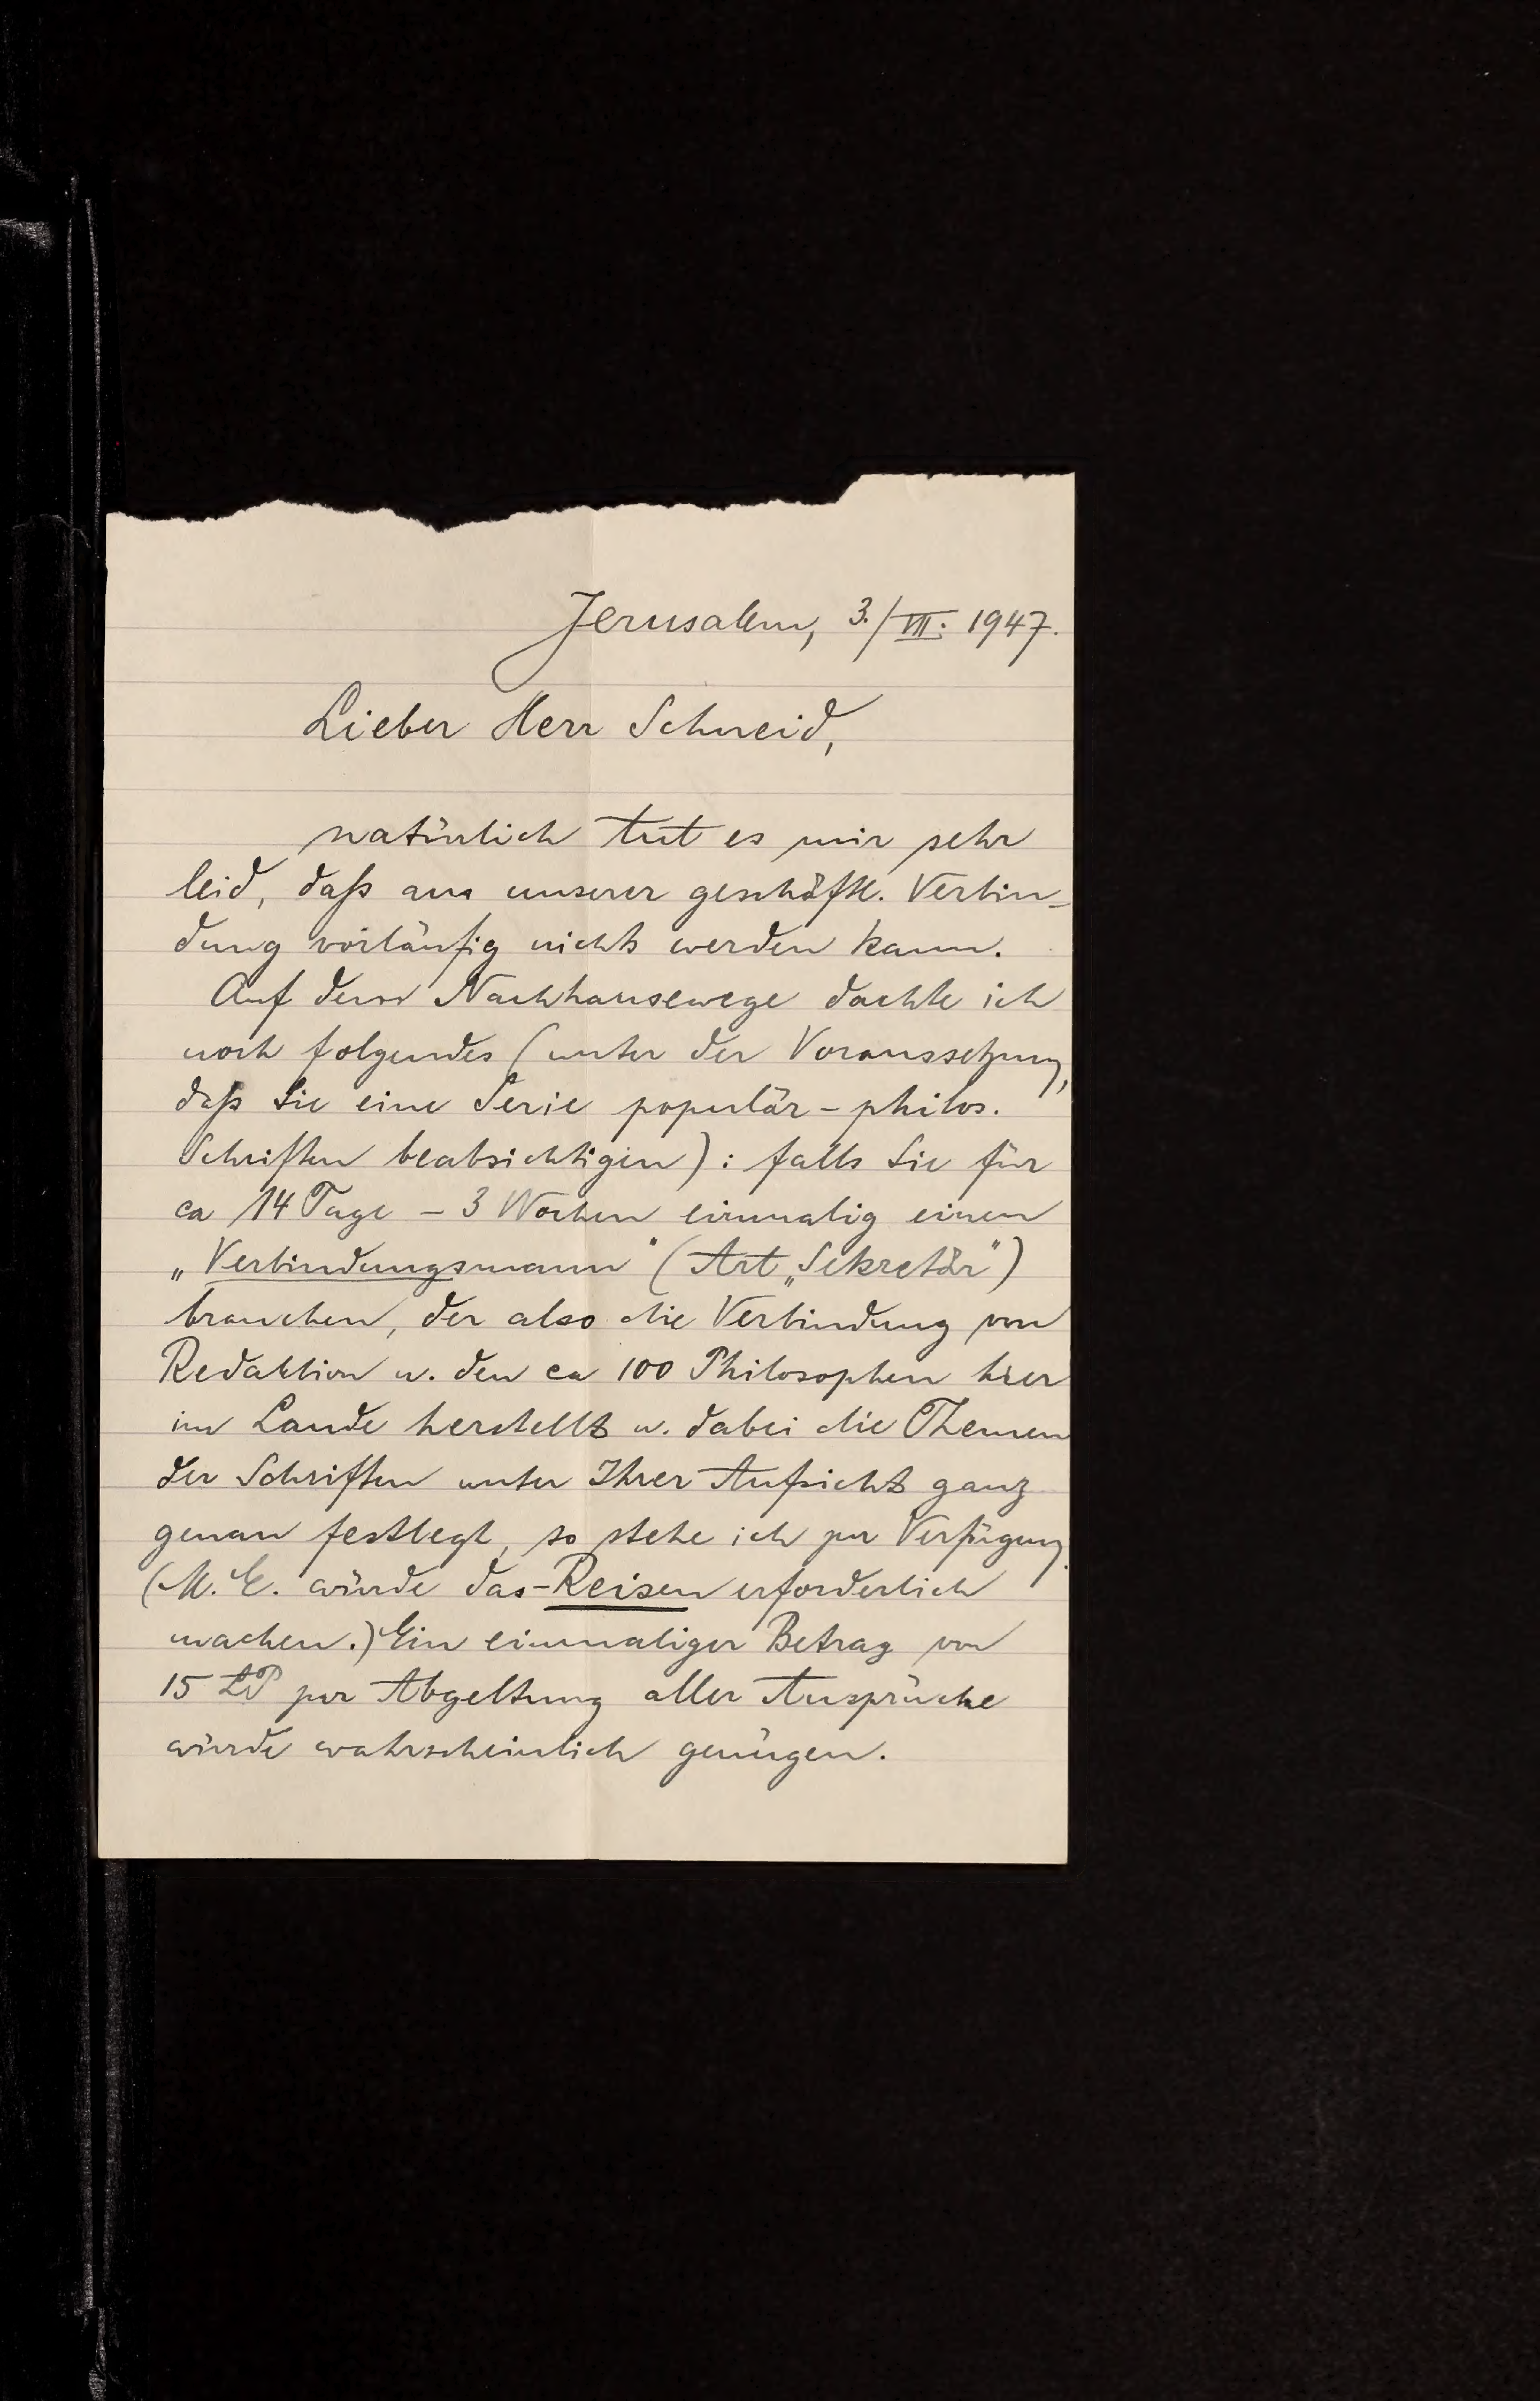 Jerusalem, 3./VII. 1947.
Lieber Herr Schneid,
natürlich tut es mir sehr
leid, daß aus unserer geschäftl. Verbin-
dung vorläufig nichts werden kann.
Auf dem Nachhausewege dachte ich
noch folgendes (unter der Voraussetzung,
daß Sie eine Serie populär-philos.
Schriften beabsichtigen): falls Sie für
ca 14 Tage - 3 Wochen einmalig einen
„Verbindungsmann" (Art „Sekretär")
brauchen, der also die Verbindung von
Redaktion u. den ca 100 Philosophen hier
im Lande herstellt u. dabei die Themen
der Schriften unter Ihrer Aufsicht ganz
genau festlegt, so stehe ich zur Verfügung.
(M. E. würde das Reisen erforderlich
machen.) Ein einmaliger Betrag von
15 LP zur Abgeltung aller Ansprüche
würde wahrscheinlich genügen.